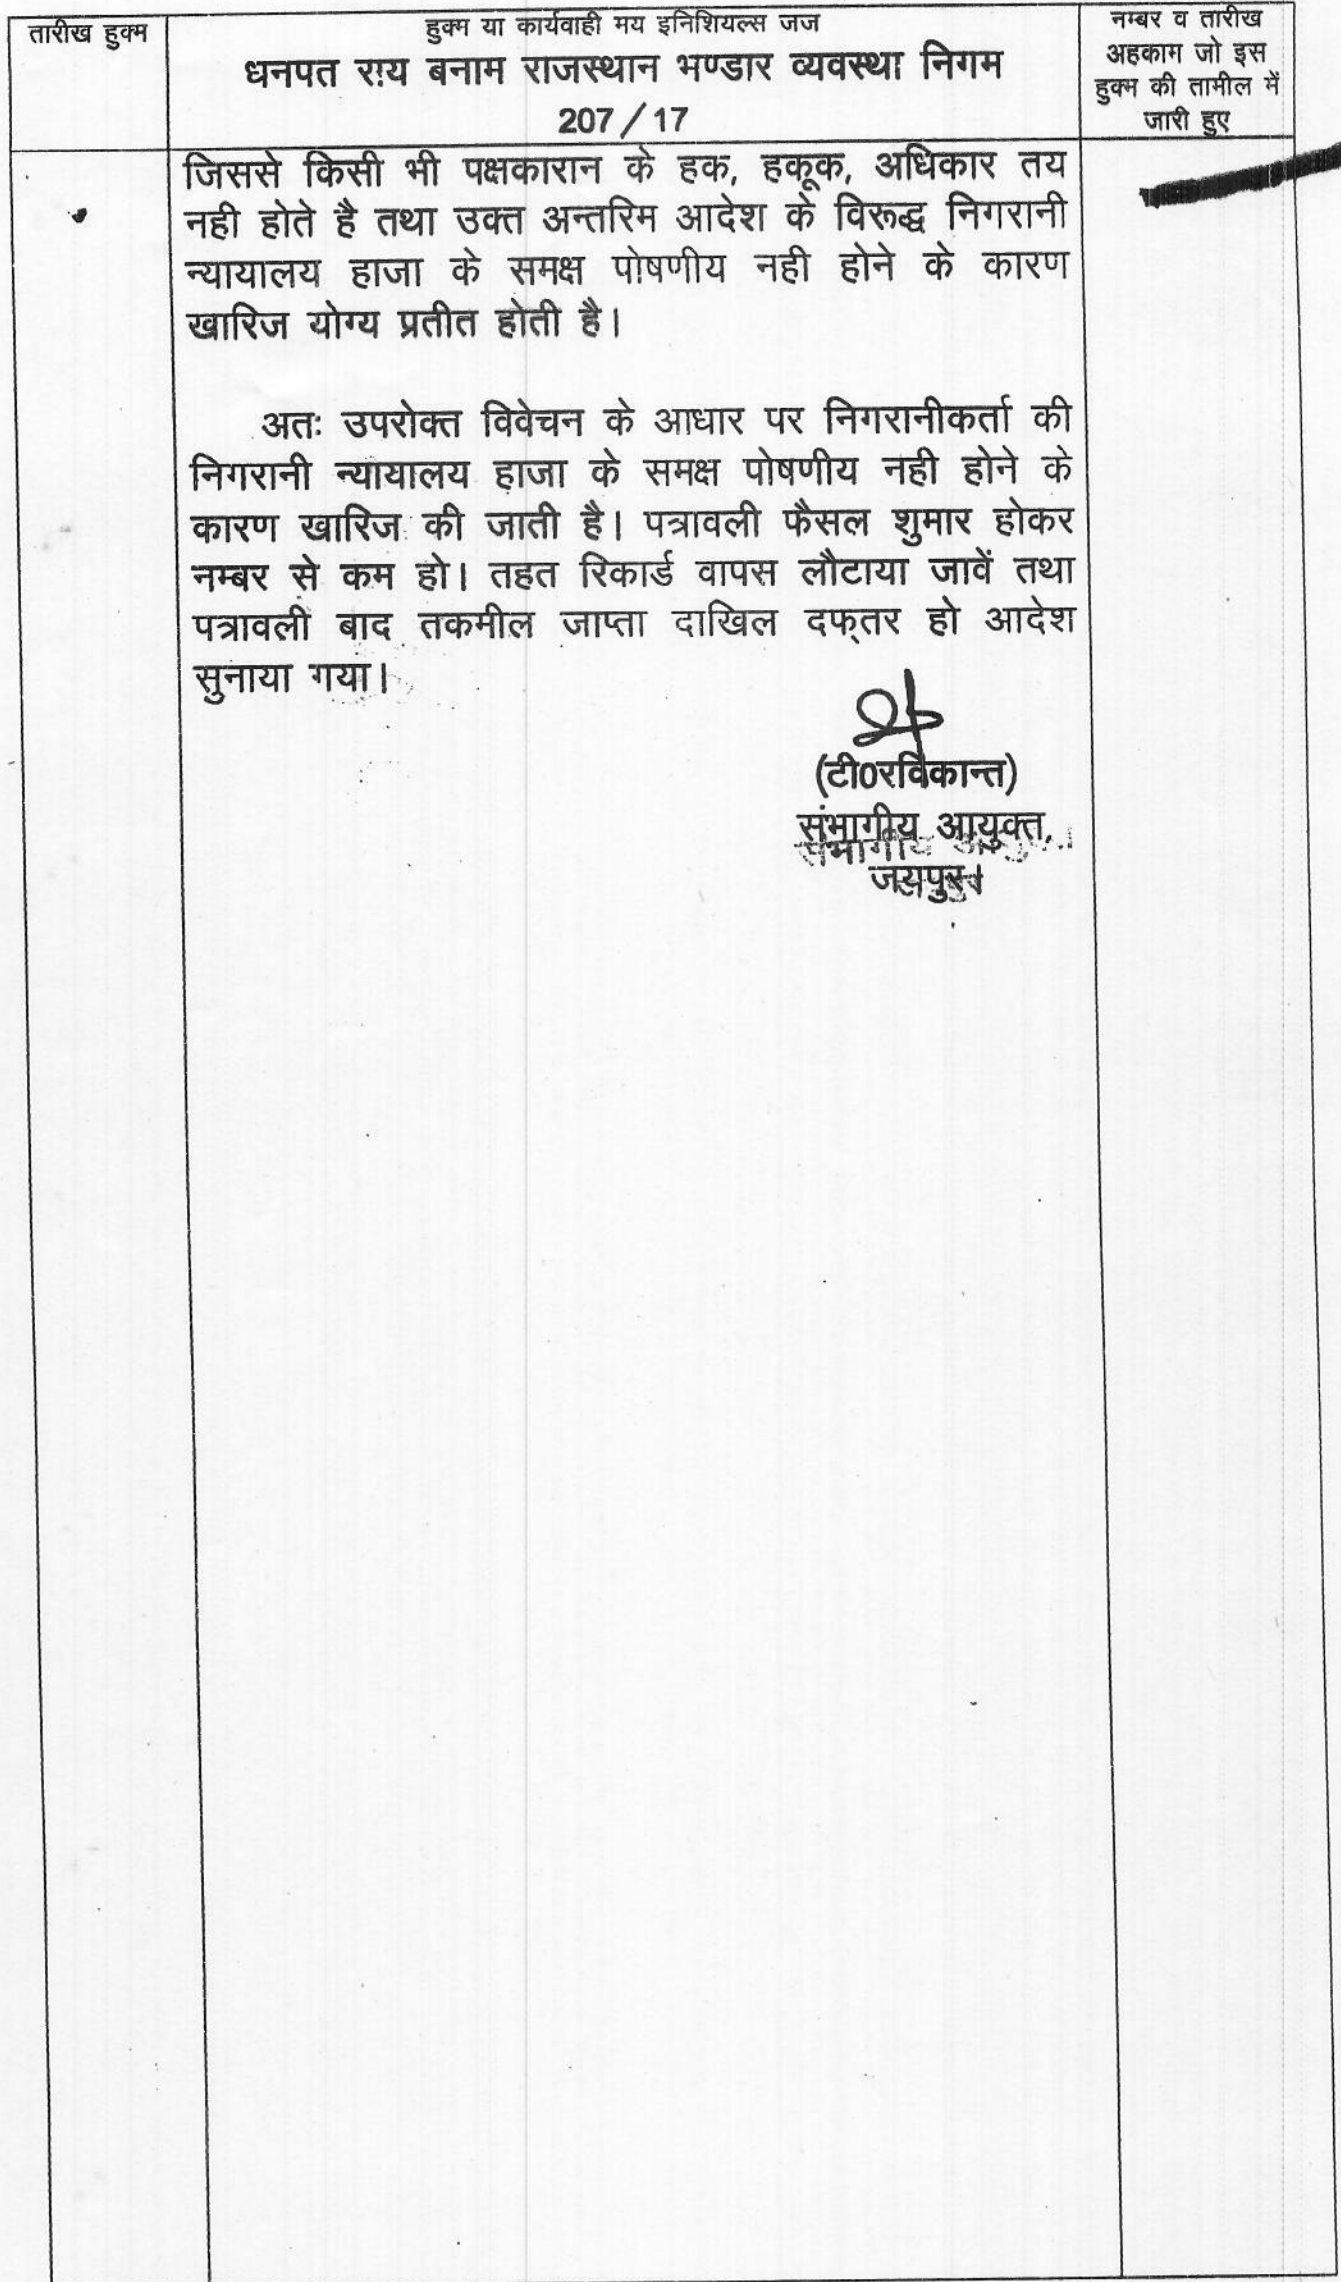 तारीख हुक्म
हुक्म या कार्यवाही मय इनिशियल्स जज
धनपत राय बनाम राजस्थान भण्डार व्यवस्था निगम
207/17
नम्बर व तारीख
अहकाम जो इस
हुक्म की तामील में
जारी हुए
जिससे किसी भी पक्षकारान के हक, हकूक, अधिकार तय
नही होते है तथा उक्त अन्तरिम आदेश के विरूद्ध निगरानी
न्यायालय हाजा के समक्ष पोषणीय नही होने के कारण
खारिज योग्य प्रतीत होती है।
अतः उपरोक्त विवेचन के आधार पर निगरानीकर्ता की
निगरानी न्यायालय हाजा के समक्ष पोषणीय नही होने के
कारण खारिज की जाती है। पत्रावली फैसल शुमार होकर
नम्बर से कम हो। तहत रिकार्ड वापस लौटाया जावें तथा
पत्रावली बाद तकमील जाप्ता दाखिल दफ्तर हो आदेश
सुनाया गया।
(टी0रविकान्त)
संभागीय आयुक्त,
जयपुर।